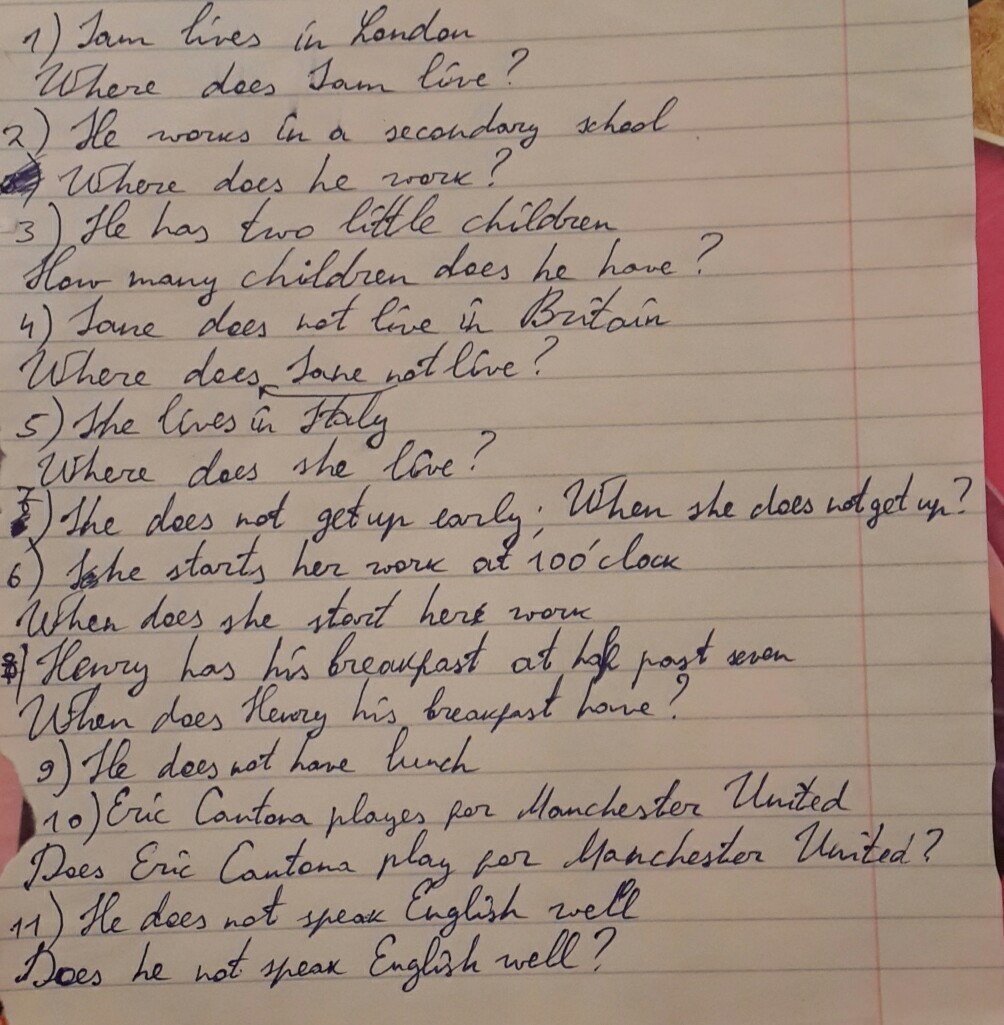 1) Sam lives in London
Where does Sam live?
2) He works in a secondary school
Where does he work?
3) He has two little children
How many children does he have?
4) Jane does not live in Britain
Where does Jane not live?
5) She lives in Italy
Where does she live?
7) She does not get up early; When she does not get up?
6) She starts her work at 10 o'clock
When does she start her work
8) Henry has his breakfast at half past seven
When does Henry his breakfast have?
9) He does not have lunch
10) Eric Cantona playes for Manchester United
Does Eric Cantona play for Manchester United?
11) He does not speak English well
Does he not speak English well?